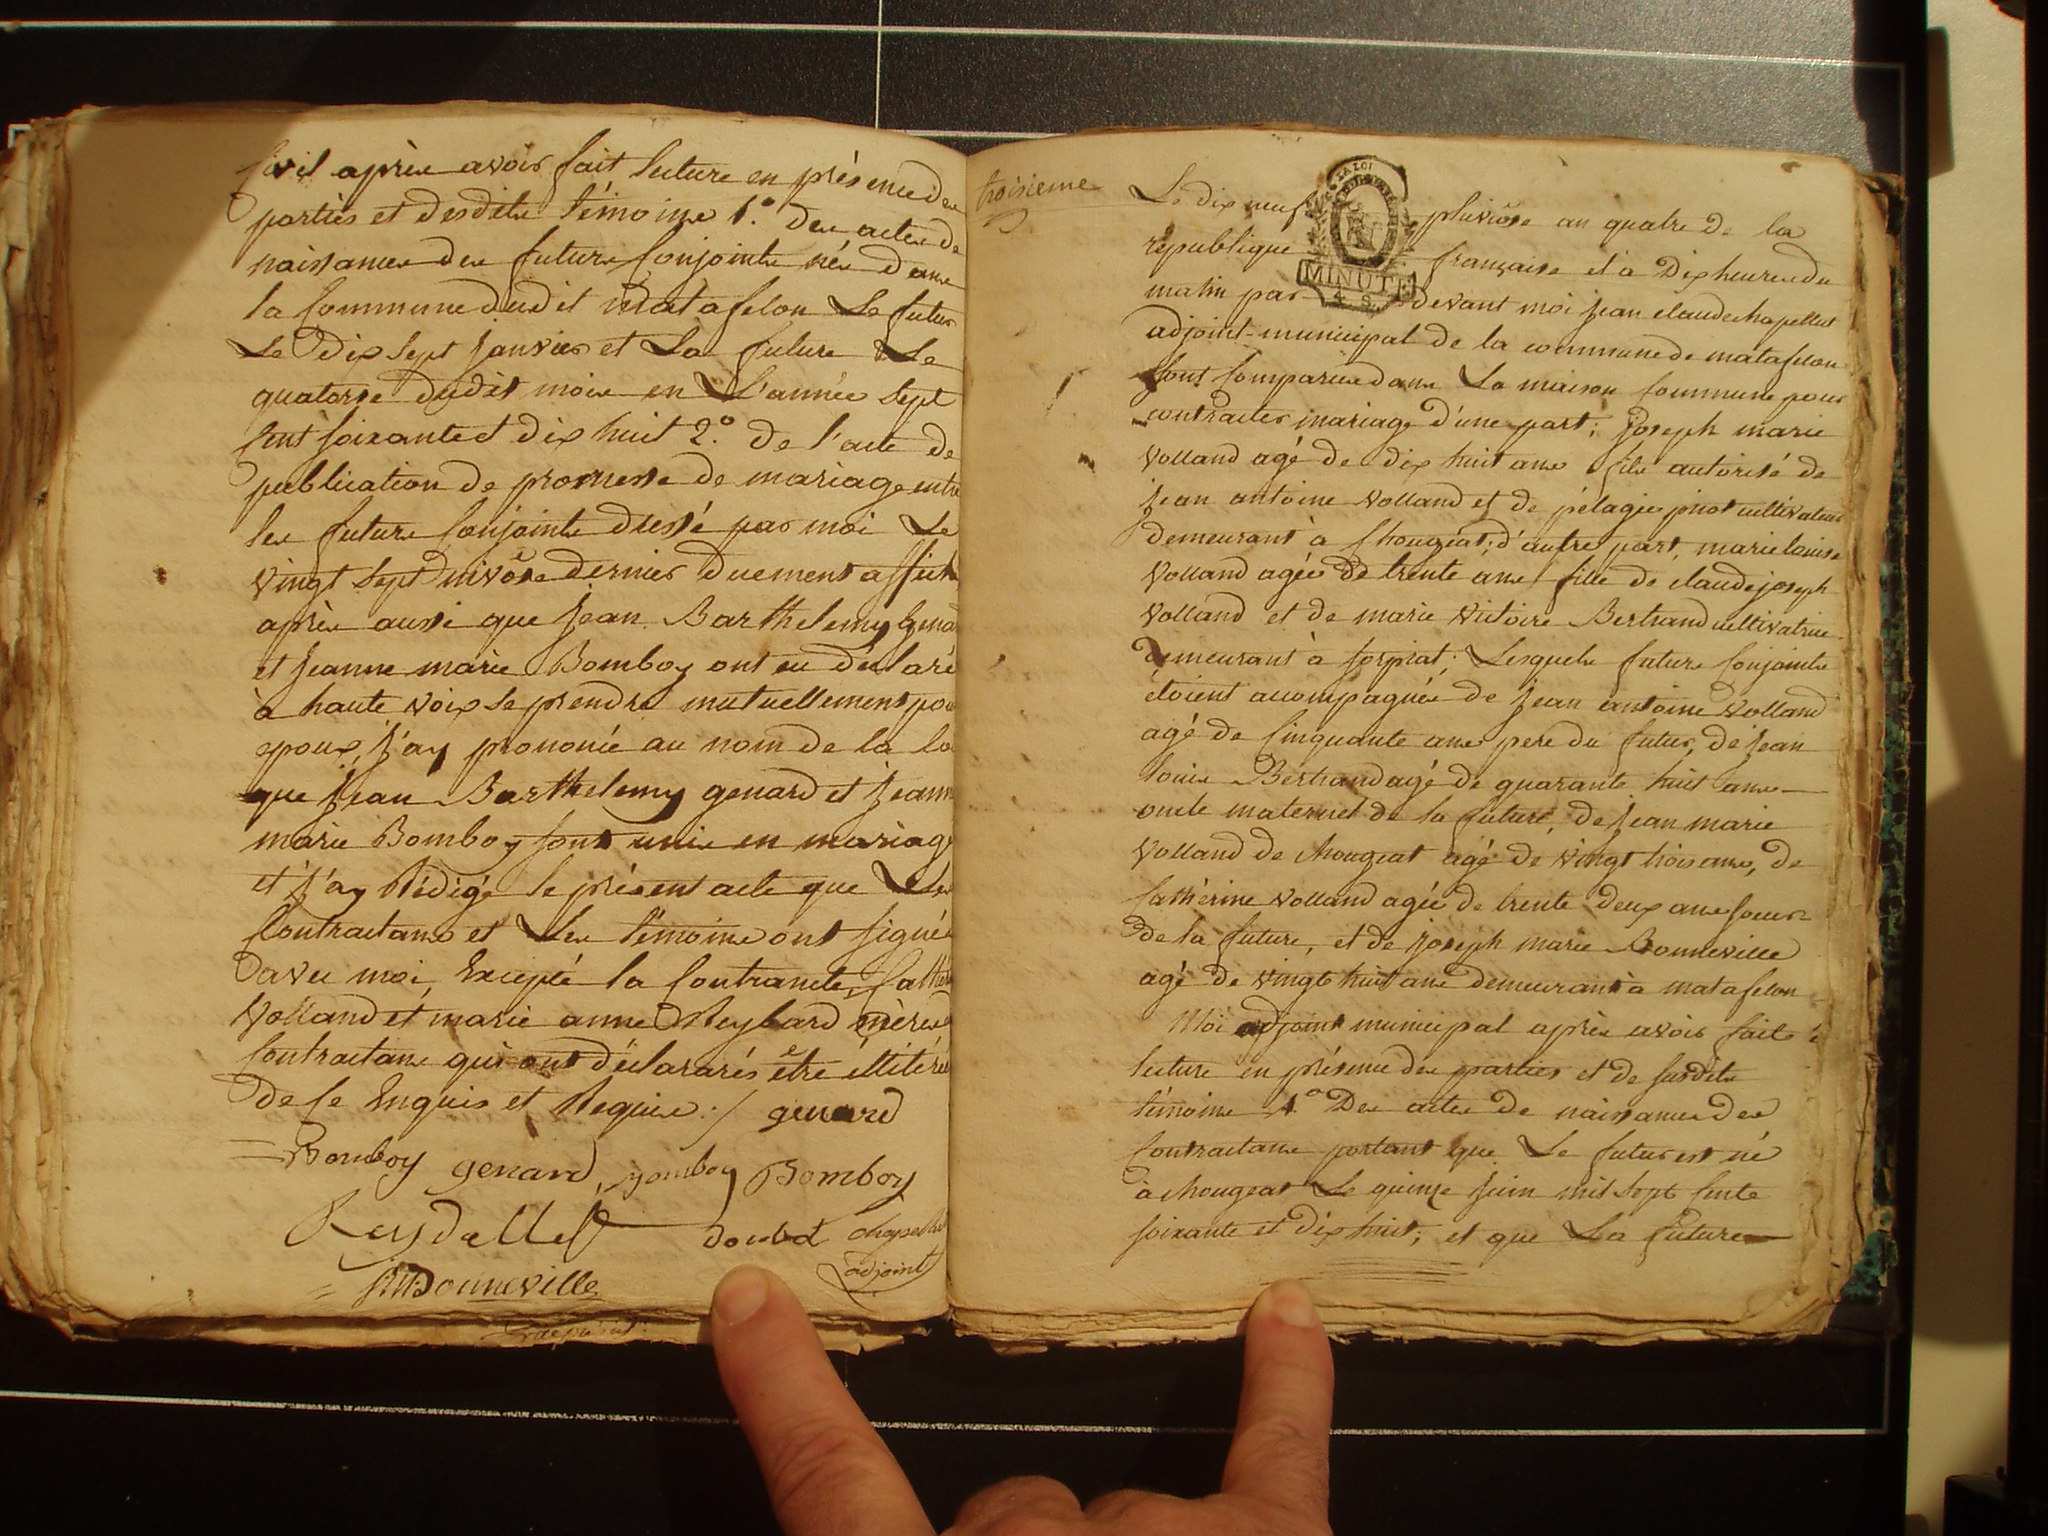 Civil après avoir fait lecture en présence des
parties et desdits témoins 1.° des actes de
naissances des futurs Conjoints nés dans
la Commune dudit Matafelon Le futur
Le Dix sept Janvier et La future Le
quatorse dudit mois en L'année sept
Cent soixante et dix huit 2.° de l'acte de
publication de promesse de mariage entre
les futurs Conjoints dressé par moi Le
vingt sept nivôse dernier duement affiché
après aussi que Jean Barthelemy genard
et Jeanne marie Bomboy ont eu déclaré
à haute voix se prendre mutuellement pour
epoux, J'ay prononcé au nom de la loi
que Jean Barthelemy genard et Jeanne
marie Bomboy sont unis en mariage
et J'ay Rédigé le présent acte que Les
Contractans et Les témoins ont signés
avec moi, Excepté la Contractante, Catherine
Volland et marie anne Reybard mères des
Contractans qui ont déclararés être illitérés
de ce Enquis et Requis :/ genard
Bomboy genard, Bomboy Bomboy
Reydellet Douvat chapellut
adjoint
JMBonneville
troisieme
Le dix neuf pluviôse an quatre de la
republique française et à Dix heures du
matin par devant moi Jean claude chapellut
adjoint municipal de la commune de matafelon
sont Comparus dans La maison Commune pour
contracter mariage d'une part; Joseph marie
Volland agé de dix huit ans fils autorisé de
Jean antoine Volland et de pélagie priot cultivateur
demeurant à Chougeat; d'autre part, marie louise
Volland agée de trente ans fille de claude joseph
Volland et de marie Victoire Bertrand cultivatrice
demeurant à Corpiat; Lesquels futurs Conjoints
étoient accompagnés de Jean antoine Volland
agé de Cinquante ans pere du futur, de Jean
louis Bertrand agé de quarante huit ans
oncle maternel de la future, de Jean marie
Volland de chougeat agé de vingt trois ans, de
Cathérine Volland agée de trente deux ans soeur
de la future, et de Joseph marie Bonneville
agé de vingt huit ans demeurant à matafelon
Moi adjoint municipal après avoir fait
lecture en présence des parties et de susdits
témoins 1.° Des actes de naissances des
Contractans portant que Le futur est né
à chougeat Le quinze Juin mil sept Cents
soixante et dix huit; et que La future
LA LOI
MINUTE
4 S.